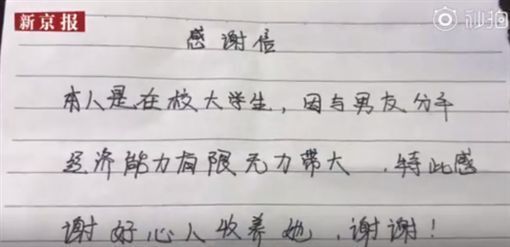 新京报
秒拍
感谢信
本人是在校大学生，因与男友分手
经济能力有限无力带大，特此感
谢好心人收养她，谢谢！